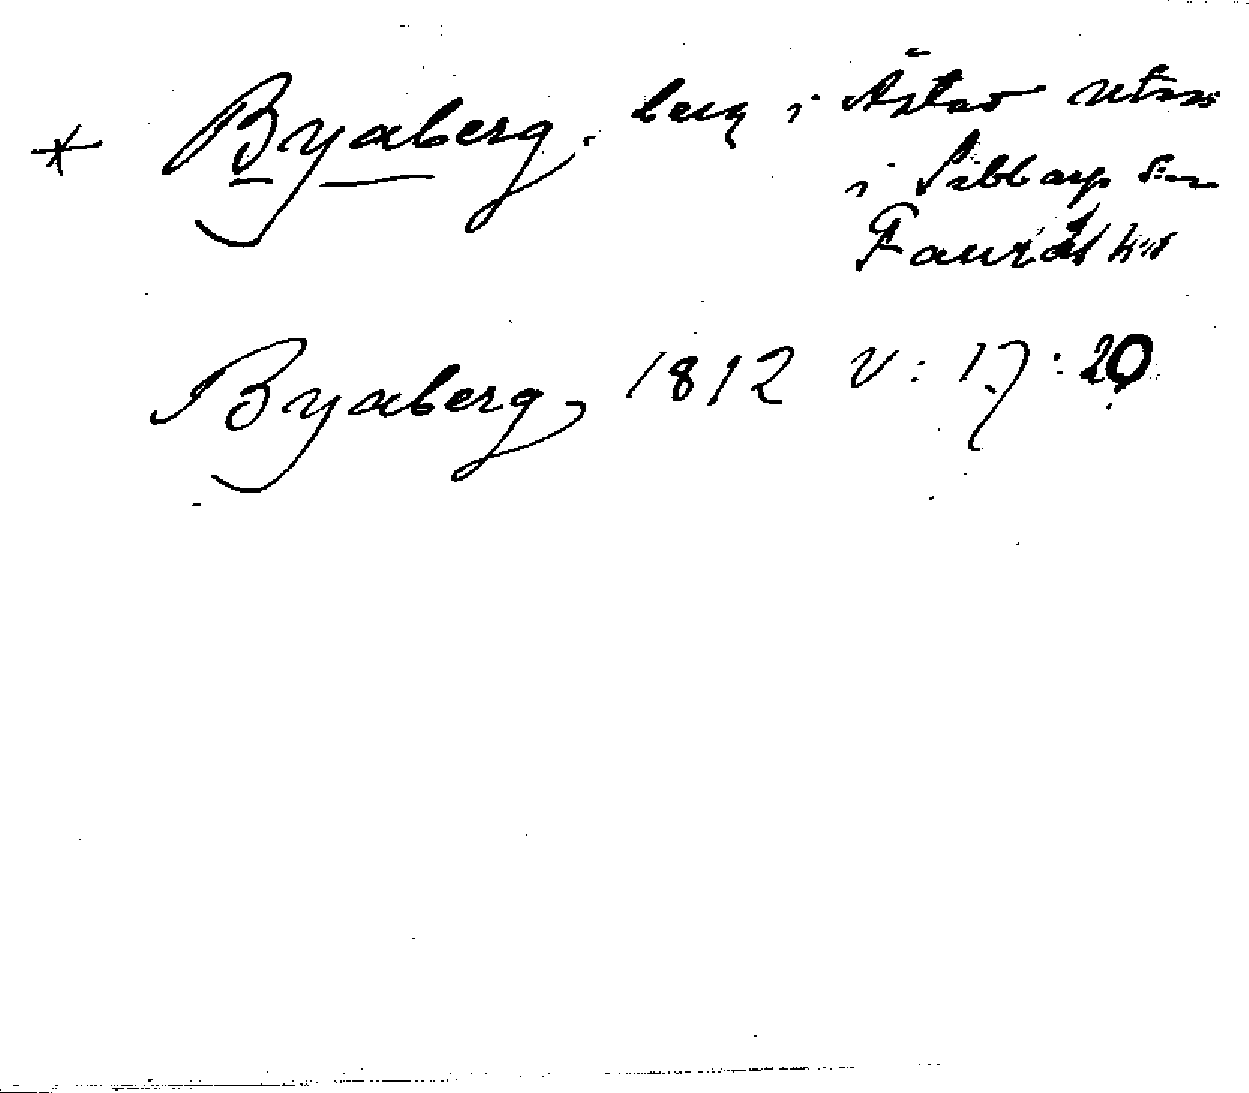 * Byaberg, berg i Ästad utm
i Sibbarp sn
Faurås hd
Byaberg, 1812 V: 17: 20